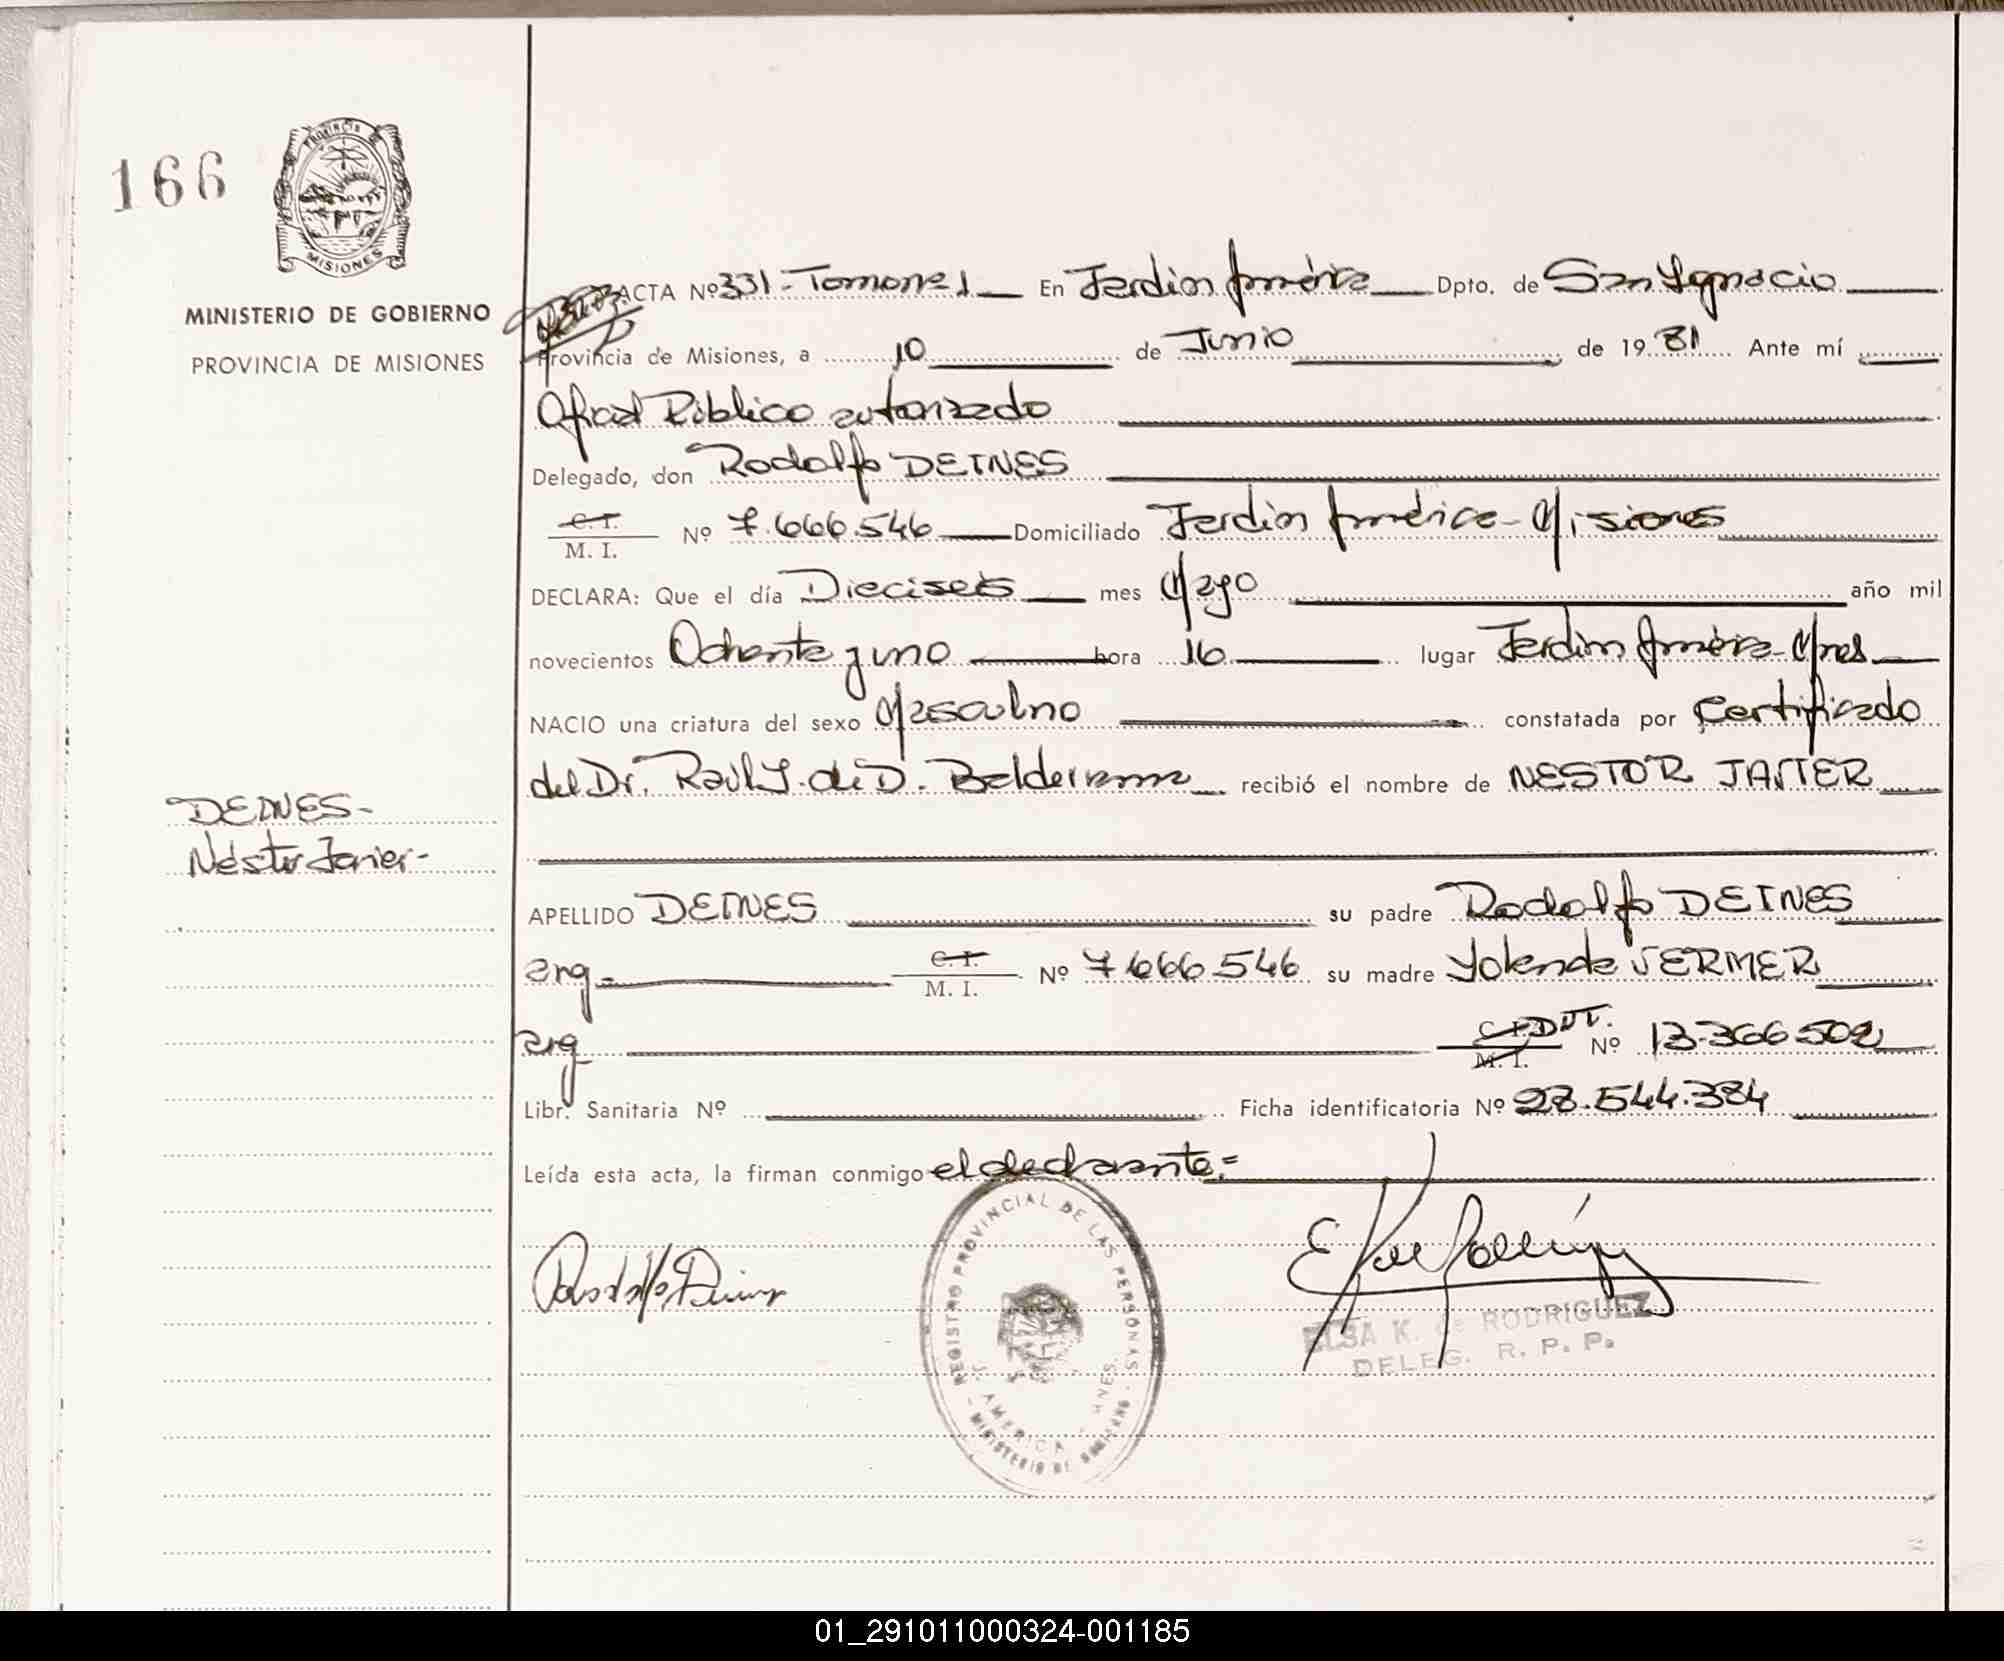 166
PROVINCIA DE
MISIONES
MINISTERIO DE GOBIERNO
PROVINCIA DE MISIONES
DEINES-
Néstor Javier-
ACTA Nº 331 - Tomo nº 1 En Jardin América Dpto. de San Ignacio
Provincia de Misiones, a 10 de Junio de 1981 Ante mí
Oficial Público autorizado
Delegado, don Rodolfo DEINES
C.I.
M. I. Nº 7.666.546 Domiciliado Jardin América - Misiones
DECLARA: Que el día Dieciseis mes Mayo año mil
novecientos Ochenta y uno hora 16 lugar Jardin América - Mnes
NACIO una criatura del sexo Masculino constatada por Certificado
del Dr. Raúl J. di D. Balderrama recibió el nombre de NESTOR JAVIER
APELLIDO DEINES su padre Rodolfo DEINES
arg - C.I.
M. I. Nº 7.666.546 su madre Yolanda VERMER
arg C.I. DNI.
M. I. Nº 13.366.502
Libr. Sanitaria Nº Ficha identificatoria Nº 28.544.384
Leída esta acta, la firman conmigo el declarante.=
Rodolfo Deines
REGISTRO PROVINCIAL DE LAS PERSONAS
J. AMERICA - MNES.
- MINISTERIO DE GOBIERNO -
ELSA K. de RODRIGUEZ
DELEG. R. P. P.
01_291011000324-001185